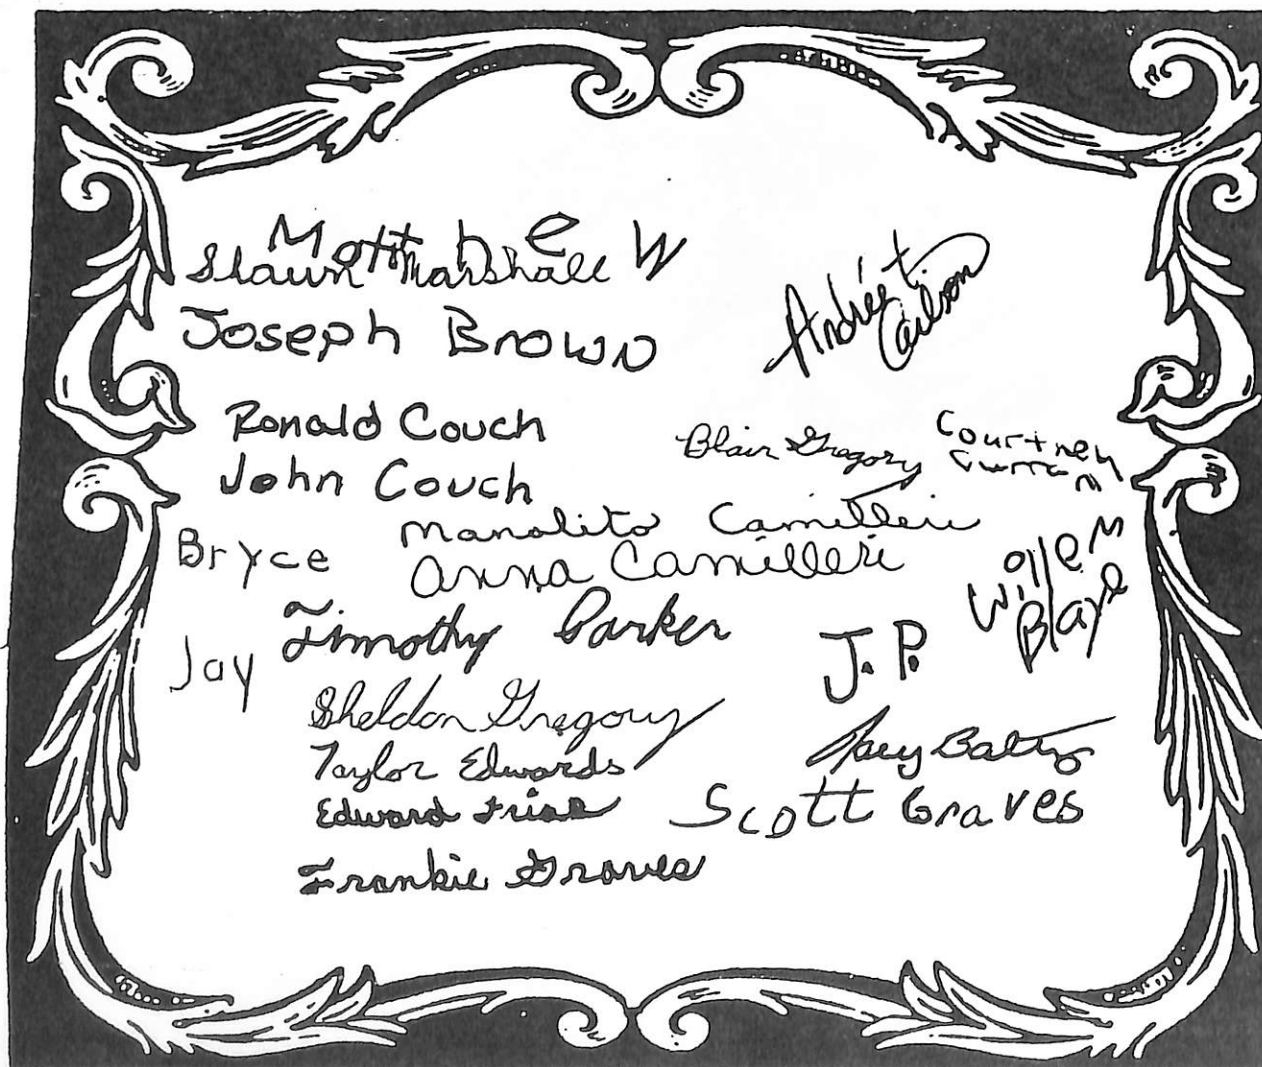 Matthew
Shawn Marshall
Joseph Brown
Andrée
Carlson
Ronald Couch
John Couch
Blair Gregory
Courtney
Curran
Manolito Camilleri
Bryce
Anna Camilleri
Willem
Blaye
Timothy Parker
J.P.
Jay
Sheldon Gregory
Taylor Edwards
Edward
Scott Graves
Frankie Graves